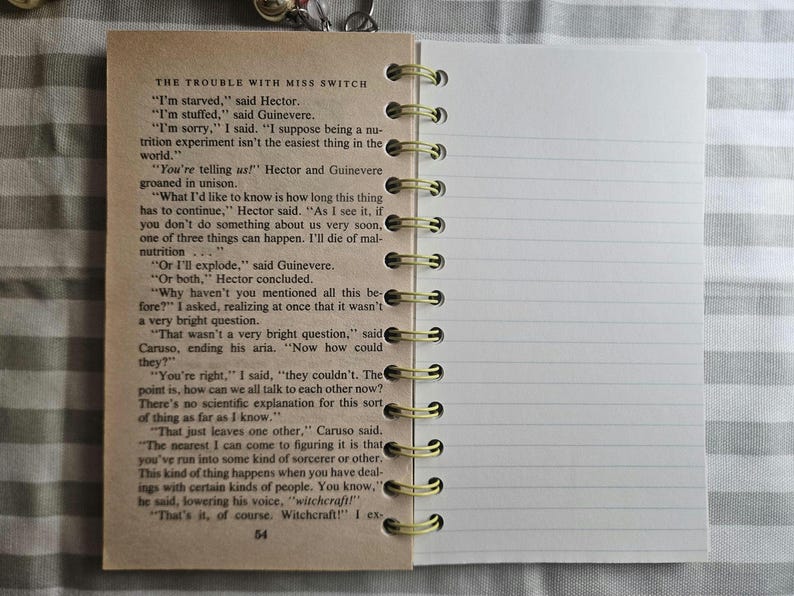 THE TROUBLE WITH MISS SWITCH
"I'm starved," said Hector.
"I'm stuffed," said Guinevere.
"I'm sorry," I said. "I suppose being a nu-
trition experiment isn't the easiest thing in the
world."
"You're telling us!" Hector and Guinevere
groaned in unison.
"What I'd like to know is how long this thing
has to continue," Hector said. "As I see it, if
you don't do something about us very soon,
one of three things can happen. I'll die of mal-
nutrition . . . "
"Or I'll explode," said Guinevere.
"Or both," Hector concluded.
"Why haven't you mentioned all this be-
fore?" I asked, realizing at once that it wasn't
a very bright question.
"That wasn't a very bright question," said
Caruso, ending his aria. "Now how could
they?"
"You're right," I said, "they couldn't. The
point is, how can we all talk to each other now?
There's no scientific explanation for this sort
of thing as far as I know."
"That just leaves one other," Caruso said.
"The nearest I can come to figuring it is that
you've run into some kind of sorcerer or other.
This kind of thing happens when you have deal-
ings with certain kinds of people. You know,"
he said, lowering his voice, "witchcraft!"
"That's it, of course. Witchcraft!" I ex-
54